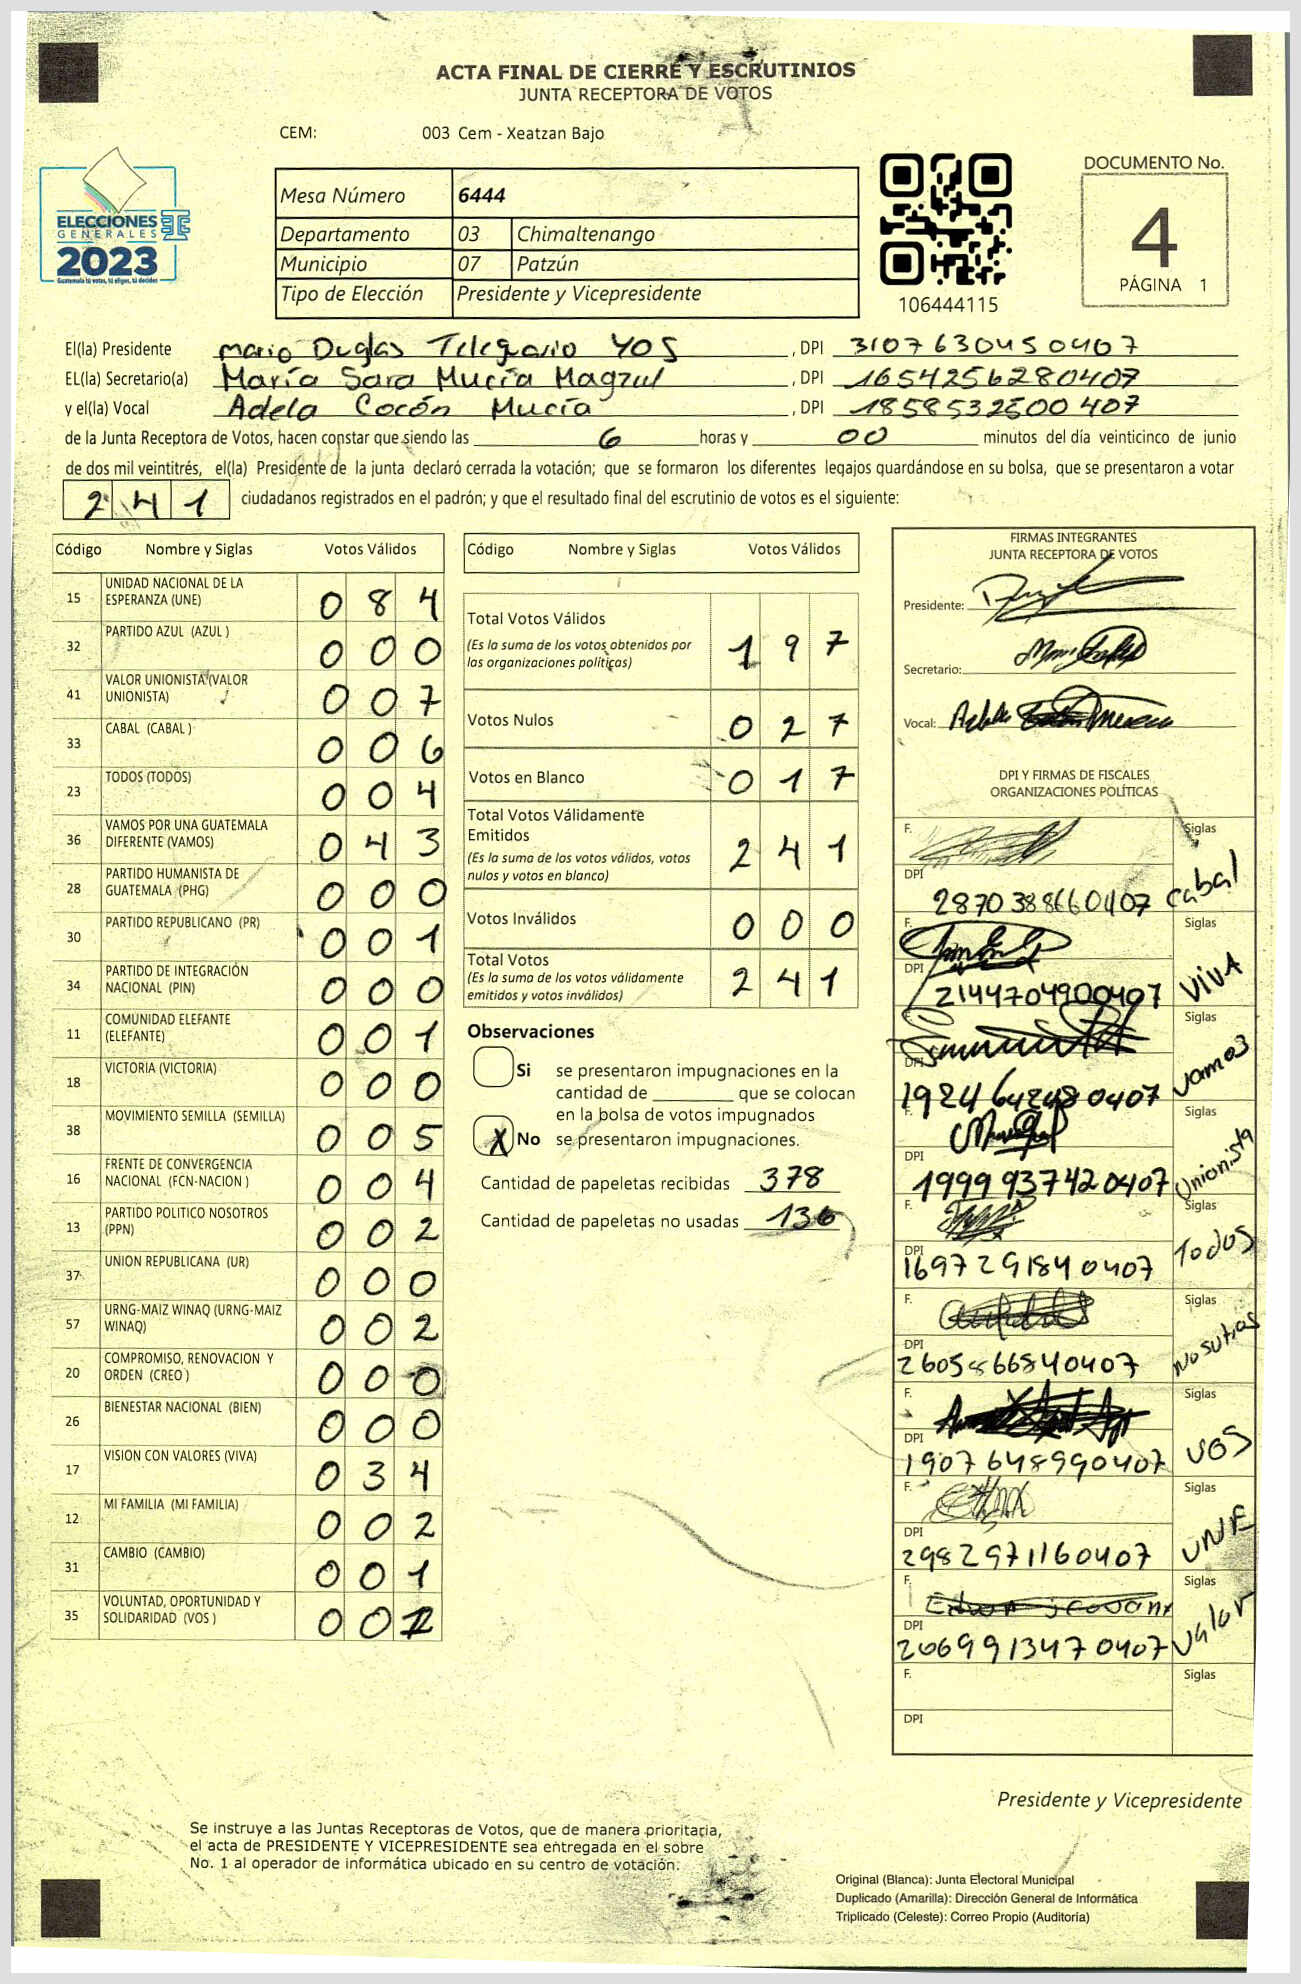 ACTA FINAL DE CIERRE Y ESCRUTINIOS
JUNTA RECEPTORA DE VOTOS
CEM: 003 Cem - Xeatzan Bajo
ELECCIONES
GENERALES
2023
Guatemala tú votas, tú eliges, tú decides
Mesa Número 6444
Departamento 03 Chimaltenango
Municipio 07 Patzún
Tipo de Elección Presidente y Vicepresidente
106444115
DOCUMENTO No.
4
PÁGINA 1
El(la) Presidente Mario Duglas Telequario YOS , DPI 3107630450407
EL(la) Secretario(a) María Sara Mucía Magzul , DPI 1654256280407
y el(la) Vocal Adela Cocón Mucía , DPI 1858532500407
de la Junta Receptora de Votos, hacen constar que siendo las 6 horas y 00 minutos del día veinticinco de junio
de dos mil veintitrés, el(la) Presidente de la junta declaró cerrada la votación; que se formaron los diferentes legajos quardándose en su bolsa, que se presentaron a votar
241 ciudadanos registrados en el padrón; y que el resultado final del escrutinio de votos es el siguiente:
Código Nombre y Siglas Votos Válidos
15 UNIDAD NACIONAL DE LA ESPERANZA (UNE) 084
32 PARTIDO AZUL (AZUL ) 000
41 VALOR UNIONISTA (VALOR UNIONISTA) 007
33 CABAL (CABAL ) 006
23 TODOS (TODOS) 004
36 VAMOS POR UNA GUATEMALA DIFERENTE (VAMOS) 043
28 PARTIDO HUMANISTA DE GUATEMALA (PHG) 000
30 PARTIDO REPUBLICANO (PR) 001
34 PARTIDO DE INTEGRACIÓN NACIONAL (PIN) 000
11 COMUNIDAD ELEFANTE (ELEFANTE) 001
18 VICTORIA (VICTORIA) 000
38 MOVIMIENTO SEMILLA (SEMILLA) 005
16 FRENTE DE CONVERGENCIA NACIONAL (FCN-NACION ) 004
13 PARTIDO POLITICO NOSOTROS (PPN) 002
37 UNION REPUBLICANA (UR) 000
57 URNG-MAIZ WINAQ (URNG-MAIZ WINAQ) 002
20 COMPROMISO, RENOVACION Y ORDEN (CREO ) 000
26 BIENESTAR NACIONAL (BIEN) 000
17 VISION CON VALORES (VIVA) 034
12 MI FAMILIA (MI FAMILIA) 002
31 CAMBIO (CAMBIO) 001
35 VOLUNTAD, OPORTUNIDAD Y SOLIDARIDAD (VOS ) 00
Código Nombre y Siglas Votos Válidos
Total Votos Válidos 197
(Es la suma de los votos obtenidos por
las organizaciones políticas)
Votos Nulos 027
Votos en Blanco 017
Total Votos Válidamente
Emitidos 241
(Es la suma de los votos válidos, votos
nulos y votos en blanco)
Votos Inválidos 000
Total Votos 241
(Es la suma de los votos válidamente
emitidos y votos inválidos)
Observaciones
Si se presentaron impugnaciones en la
cantidad de ________ que se colocan
en la bolsa de votos impugnados
X No se presentaron impugnaciones.
Cantidad de papeletas recibidas 378
Cantidad de papeletas no usadas 136
FIRMAS INTEGRANTES
JUNTA RECEPTORA DE VOTOS
Presidente:
Secretario:
Vocal:
DPI Y FIRMAS DE FISCALES
ORGANIZACIONES POLÍTICAS
F. Siglas
DPI 2870388660407 Cabal
F. Siglas
DPI 2144704900407 VIVA
F. Siglas
DPI 1924642480407 Vamos
F. Siglas
DPI 1999937420407 Unionista
F. Siglas
DPI 1697291840407 Todos
F. Siglas
DPI 2605866840407 Nosotros
F. Siglas
DPI 1907648990407 VOS
F. Siglas
DPI 2982971160407 UNE
F. Siglas
DPI 2069913470407 Valor
F. Siglas
DPI
Presidente y Vicepresidente
Se instruye a las Juntas Receptoras de Votos, que de manera prioritaria,
el acta de PRESIDENTE Y VICEPRESIDENTE sea entregada en el sobre
No. 1 al operador de informática ubicado en su centro de votación.
Original (Blanca): Junta Electoral Municipal
Duplicado (Amarilla): Dirección General de Informática
Triplicado (Celeste): Correo Propio (Auditoría)